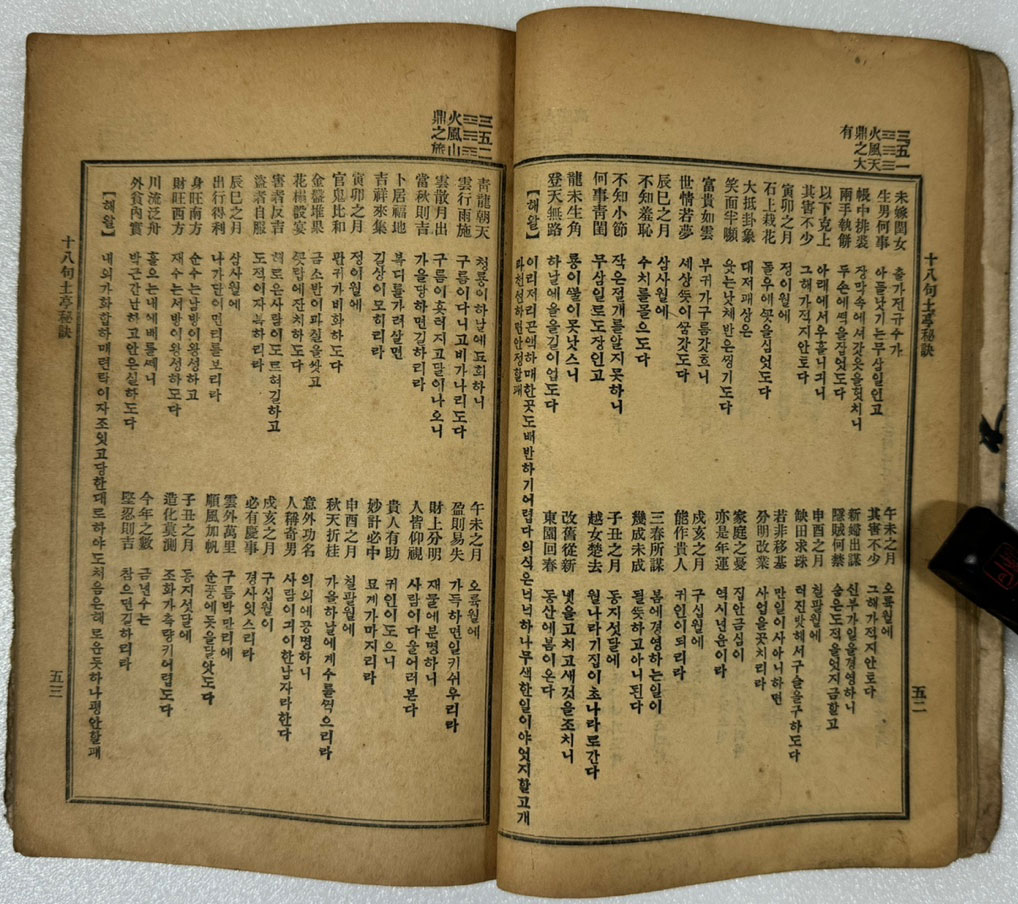 三五一
火風天
鼎之大有
十八句土亭秘訣
未嫁閨女 츌가전규수가
生男何事 아들낫기는무삼일인고
帳中排裘 장막속에셔갓옷을헛치니
兩手執餠 두손에떡을잡엇도다
以下克上 아래에서우흘니긔니
其害不少 그해가적지안토다
寅卯之月 정이월에
石上栽花 돌우에꼿을심엇도다
大抵卦象 대저괘상은
笑面半嚬 웃는낫체반은찡기도다
富貴如雲 부귀가구름갓흐니
世情若夢 세상뜻이꿈갓도다
辰巳之月 삼사월에
不知羞恥 수치를몰으도다
不知小節 작은절개를알지못하니
何事靑閨 무삼일로도장인고
龍未生角 룡이뿔이못낫스니
登天無路 하날에올을길이업도다
午未之月 오륙월에
其害不少 그해가적지안토다
新婦出謀 신부가일을경영하니
隱賊何禁 숨은도적을엇지금할고
申酉之月 칠팔월에
缺田求珠 터진밧헤서구슬을구하도다
若非移基 만일이사아니하면
分明改業 사업을곳치리라
家庭之憂 집안금심이
亦是年運 역시년운이라
戌亥之月 구십월에
能作貴人 귀인이되리라
三春所謀 봄에경영하는일이
幾成未成 될뜻하고아니된다
子丑之月 동지섯달에
越女楚去 월나라기집이초나라로간다
改舊從新 녯을고치고새것을조치니
東園回春 동산에봄이온다
【해왈】 이리저리곤액하매한곳도배반하기어렵다의식은넉넉하나무색한일이야엇지할고개
과천선하면안정할괘
五二
三五二
火風山
鼎之旅
青龍朝天 청룡이하날에됴회하니
雲行雨施 구름이다니고비가나리도다
雲散月出 구름이흣허지고달이나오니
當秋則吉 가을당하면길하리라
卜居福地 복디를가려살면
吉祥來集 길상이모히리라
寅卯之月 정이월에
官鬼比和 관귀가비화하도다
金盤堆果 금소반에과실을쌋고
花榻設宴 꼿탑에잔치하도다
害者反吉 해로은사람이도르혀길하고
盜者自服 도적이자복하리라
辰巳之月 삼사월에
出行得利 나가단이면리를보리라
身旺南方 순수는남방이왕성하고
財旺西方 재수는서방이왕성하도다
川流泛舟 흘으는내에배를씌니
外貧內實 박근간난하고안은실하도다
午未之月 오륙월에
盈則易失 가득하면일키쉬우리라
財上分明 재물에분명하니
人皆仰視 사람이다울어러본다
貴人有助 귀인이도으니
妙計必中 묘계가마지리라
申酉之月 칠팔월에
秋天折桂 가을하날에계수를꺽으리라
意外功名 의외에공명하니
人稱奇男 사람이긔이한남자라한다
戌亥之月 구십월이
必有慶事 경사잇스리라
雲外萬里 구름박만리에
順風加帆 순풍에돗을달앗도다
子丑之月 동지섯달에
造化莫測 조화가측량키어렵도다
今年之數 금년수는
堅忍則吉 참으면길하리라
【해왈】 내외가화합하매련탁이자조잇고당한대로하야도처음은해로운듯하나평안할괘
十八句土亭秘訣
五三